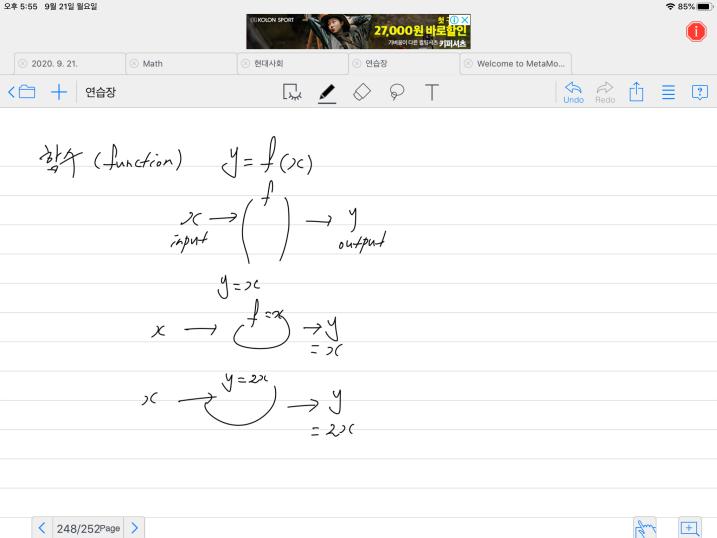 오후 5:55 9월 21일 월요일 85%
KOLON SPORT
27,000원 바로할인
키퍼셔츠
2020. 9. 21. Math 현대사회 연습장 Welcome to MetaMo...
연습장 T Undo Redo
함수 (function) y = f(x)
f
x → → y
input output
y = x
f = x
x → → y
= x
y = 2x
x → → y
= 2x
248/252Page